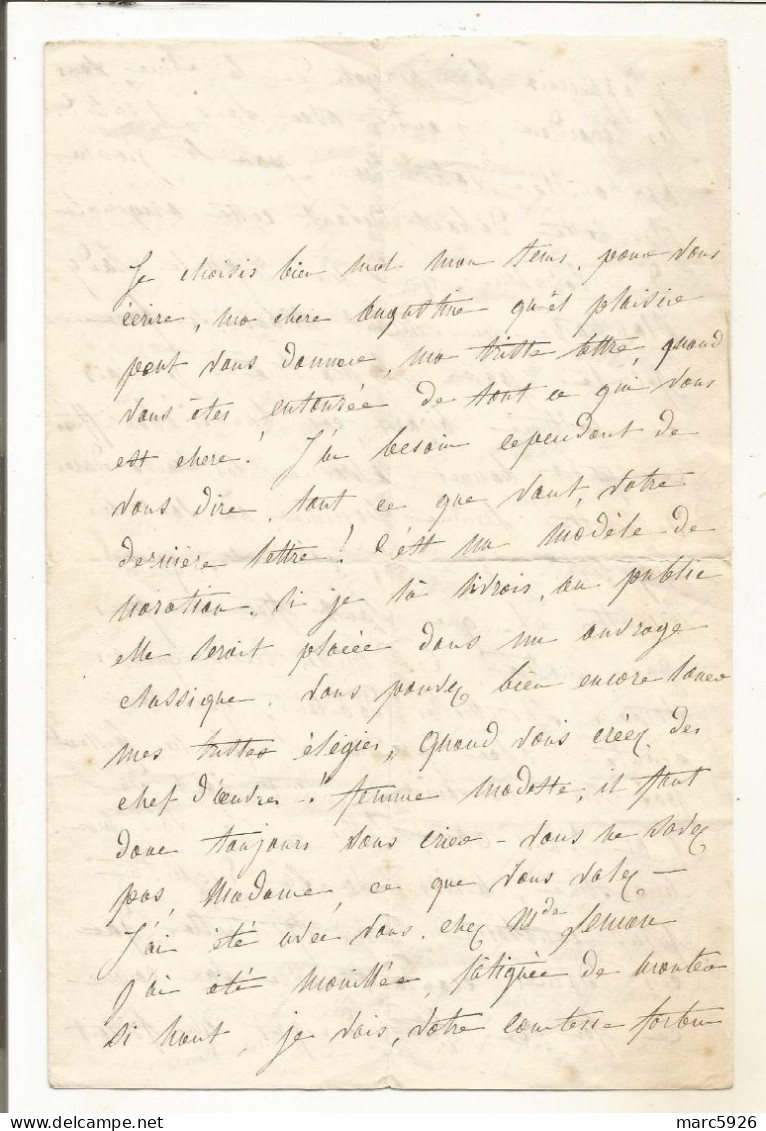 Je choisis bien mal mon tems, pour vous
écrire, ma chere Augustine quel plaisir
peut vous donner, ma triste lettre, quand
vous êtes entourée de tout ce qui vous
est chere! J'ai besoin cependant de
vous dire, tout ce que vaut, votre
dernière lettre! C'est un modèle de
naration, si je la livrois, au public
elle seroit placée dans un ouvrage
classique. Vous pouvez bien encore louer
mes tristes élégies, quand vous créez des
chef d'œuvres -! femme modeste; il faut
donc toujours vous crier - vous ne savez
pas, Madame, ce que vous valez -
J'ai été avec vous, chez Mde
j'ai été mouillée, fatiguée de monter
si haut, je vois, votre comtesse
marc5926